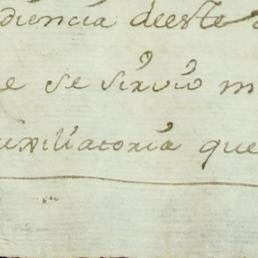 diencia deeste
e se sirvio m
uxiliatoria que